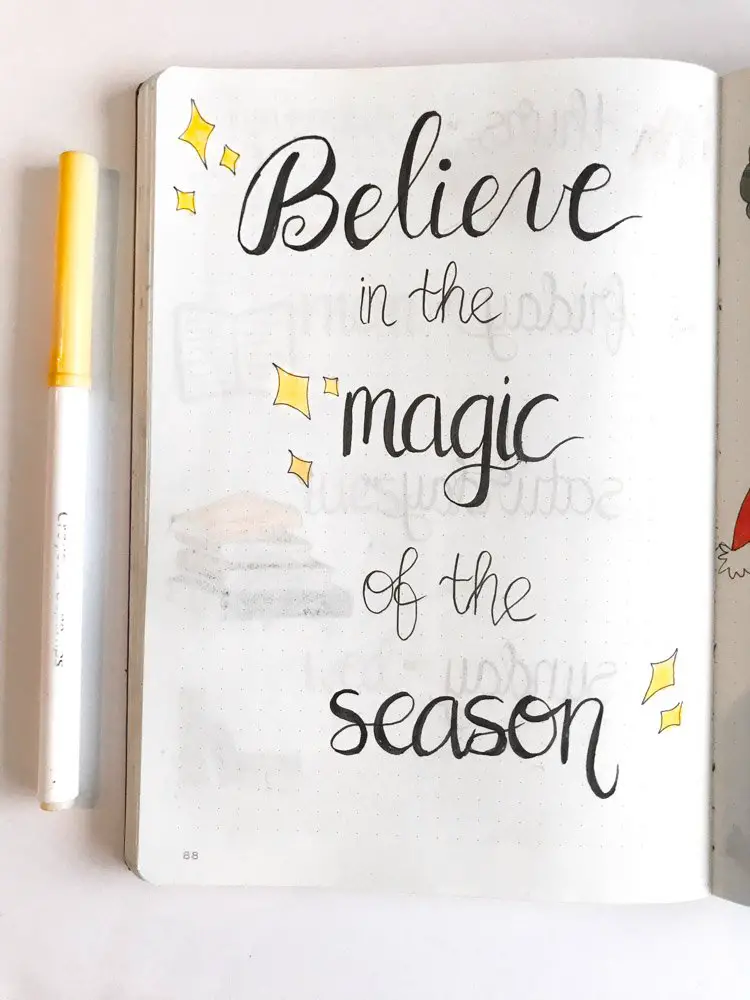 Believe
in the
magic
of the
season
88